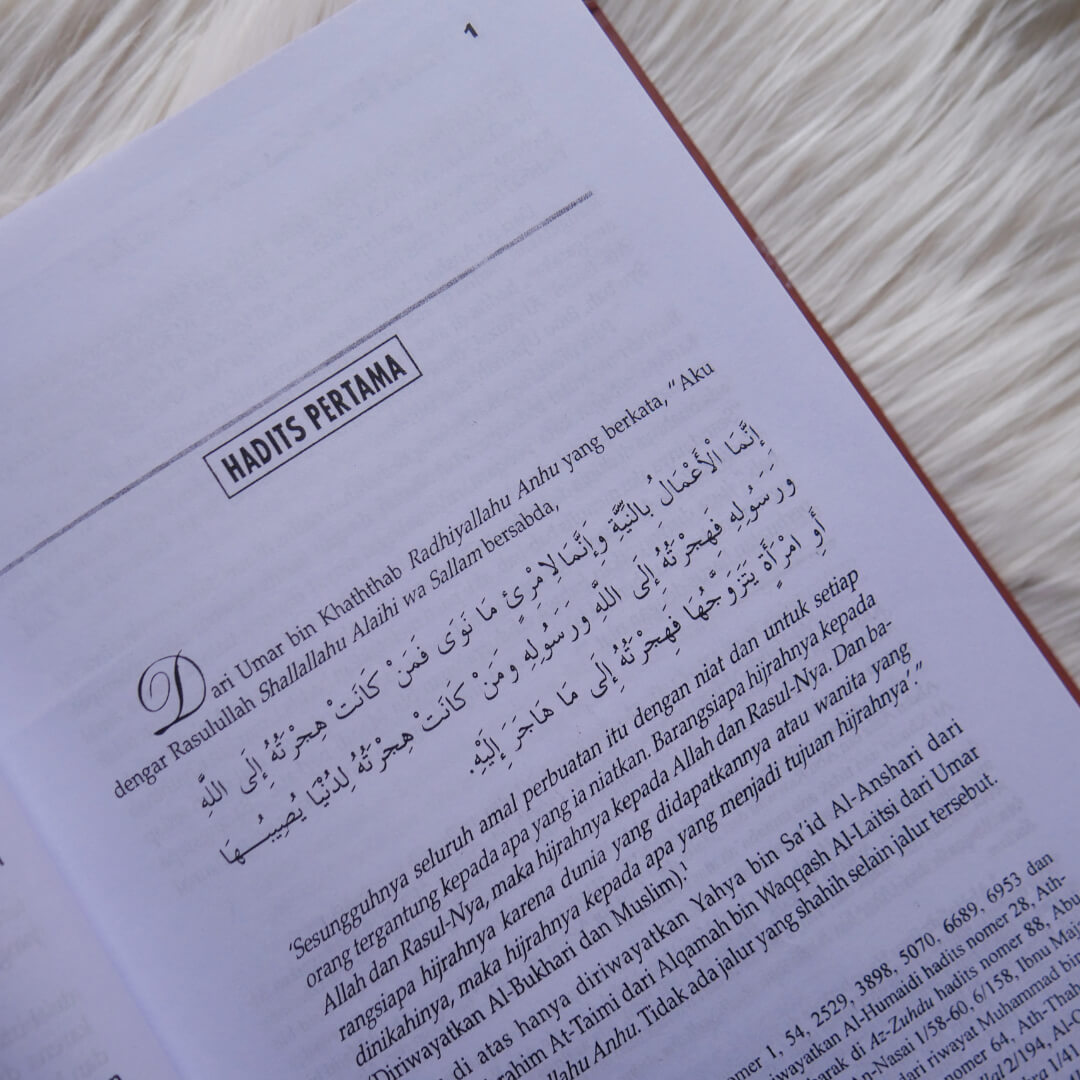 1
HADITS PERTAMA
Dari Umar bin Khaththab Radhiyallahu Anhu yang berkata, "Aku
dengar Rasulullah Shallallahu Alaihi wa Sallam bersabda,
إِنَّمَا الْأَعْمَالُ بِالنِّيَّةِ وَإِنَّمَا لِامْرِئٍ مَا نَوَى فَمَنْ كَانَتْ هِجْرَتُهُ إِلَى اللَّهِ
وَرَسُولِهِ فَهِجْرَتُهُ إِلَى اللَّهِ وَرَسُولِهِ وَمَنْ كَانَتْ هِجْرَتُهُ لِدُنْيَا يُصِيبُـــهَا
أَوِ امْرَأَةٍ يَتَزَوَّجُهَا فَهِجْرَتُهُ إِلَى مَا هَاجَرَ إِلَيْهِ.
'Sesungguhnya seluruh amal perbuatan itu dengan niat dan untuk setiap
orang tergantung kepada apa yang ia niatkan. Barangsiapa hijrahnya kepada
Allah dan Rasul-Nya, maka hijrahnya kepada Allah dan Rasul-Nya. Dan ba-
rangsiapa hijrahnya karena dunia yang didapatkannya atau wanita yang
dinikahinya, maka hijrahnya kepada apa yang menjadi tujuan hijrahnya'."
(Diriwayatkan Al-Bukhari dan Muslim).¹
di atas hanya diriwayatkan Yahya bin Sa'id Al-Anshari dari
At-Taimi dari Alqamah bin Waqqash Al-Laitsi dari Umar
Anhu. Tidak ada jalur yang shahih selain jalur tersebut.
1, 54, 2529, 3898, 5070, 6689, 6953 dan
Al-Humaidi hadits nomer 28, Ath-
di Az-Zuhdu hadits nomer 88, Abu
1/58-60, 6/158, Ibnu
dari riwayat Muhammad bin
nomer 64, Ath-
2/194,